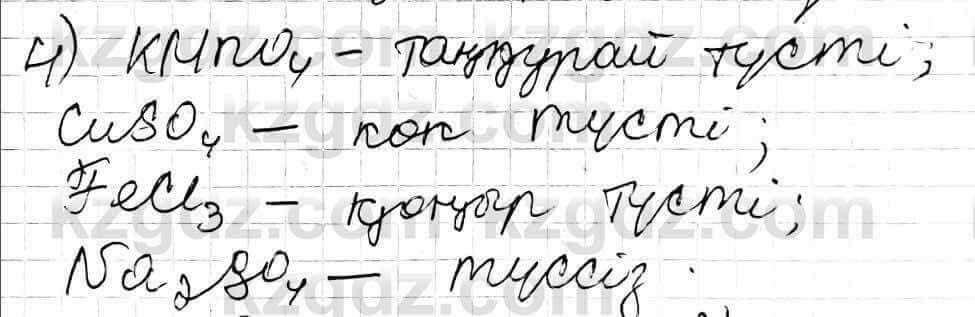 4) KMnO₄ – таңқурай түсті;
CuSO₄ – көк түсті;
FeCl₃ – қоңыр түсті;
Na₂SO₄ – түссіз.